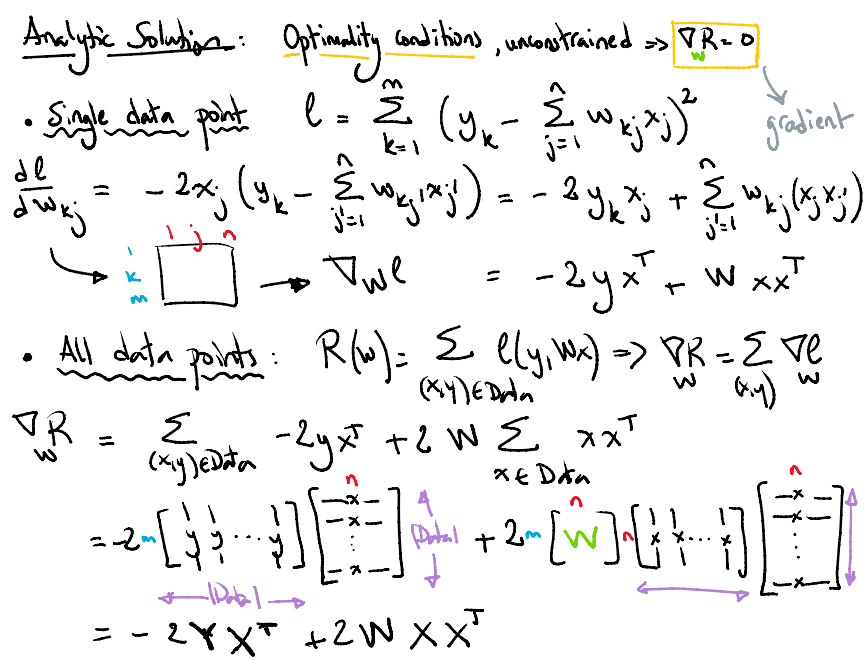 Analytic Solution: Optimality conditions, unconstrained => ∇_W R = 0
gradient
• Single data point l = ∑_{k=1}^{m} (y_k - ∑_{j=1}^{n} w_{kj} x_j)^2
dl/dw_{kj} = -2x_j (y_k - ∑_{j'=1}^{n} w_{kj'} x_{j'}) = -2 y_k x_j + ∑_{j'=1}^{n} w_{kj} (x_j x_{j'})
1 j n
1
k
m
→ ∇_W l = -2 y x^T + W x x^T
• All data points: R(W) = ∑_{(x,y)∈Data} l(y, Wx) => ∇_W R = ∑_{(x,y)} ∇_W l
∇_W R = ∑_{(x,y)∈Data} -2 y x^T + 2 W ∑_{x∈Data} x x^T
n n n
= -2 m [y y ... y] [-x- -x- ⋮ -x-] |Data| + 2 m [W] n [x x ... x] [-x- -x- ⋮ -x-]
|Data|
= -2 Y X^T + 2 W X X^T